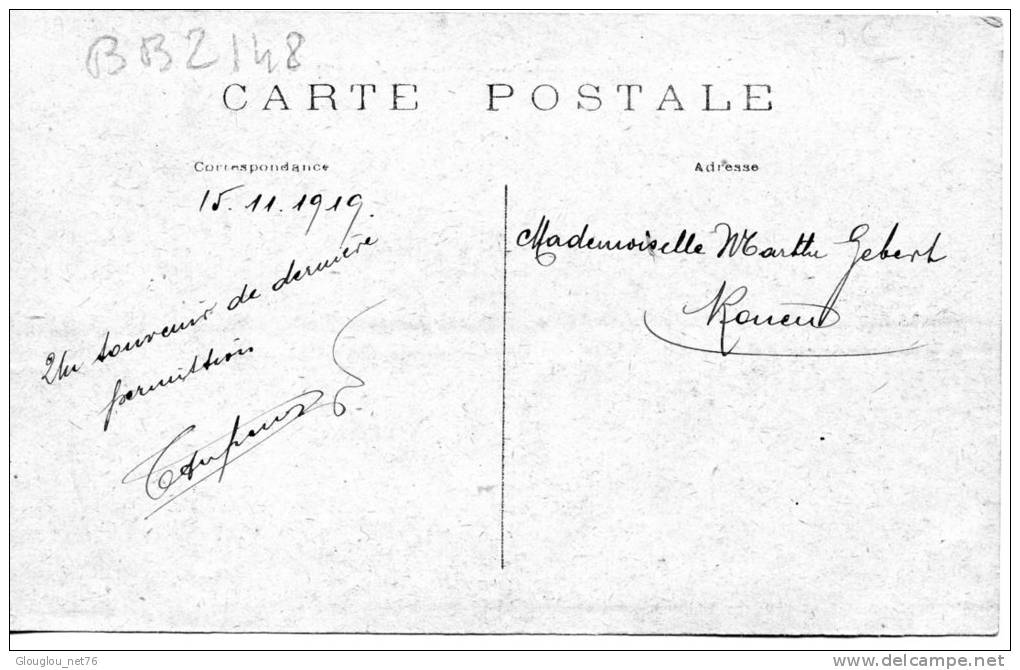 BB2148
CARTE POSTALE
Correspondance
15.11.1919.
Un souvenir de dernière
permission
Adresse
Mademoiselle Marthe Gebert
Rouen
Glouglou_net76
www.delcampe.net